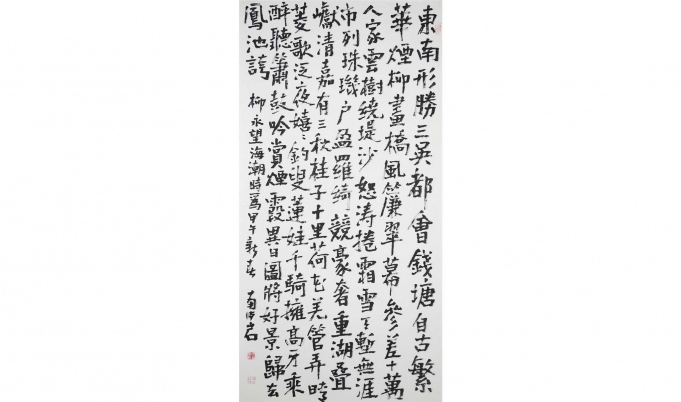 東南形勝三吳都會錢塘自古繁
華煙柳畫橋風簾翠幕參差十萬
人家雲樹繞堤沙怒濤捲霜雪天塹無涯
市列珠璣户盈羅綺競豪奢重湖疊
巘清嘉有三秋桂子十里荷花羌管弄晴
菱歌泛夜嬉〻釣叟蓮娃千騎擁高牙乘
醉聽簫鼓吟賞煙霞異日圖將好景歸去
鳳池誇
柳永望海潮時爲甲午新春